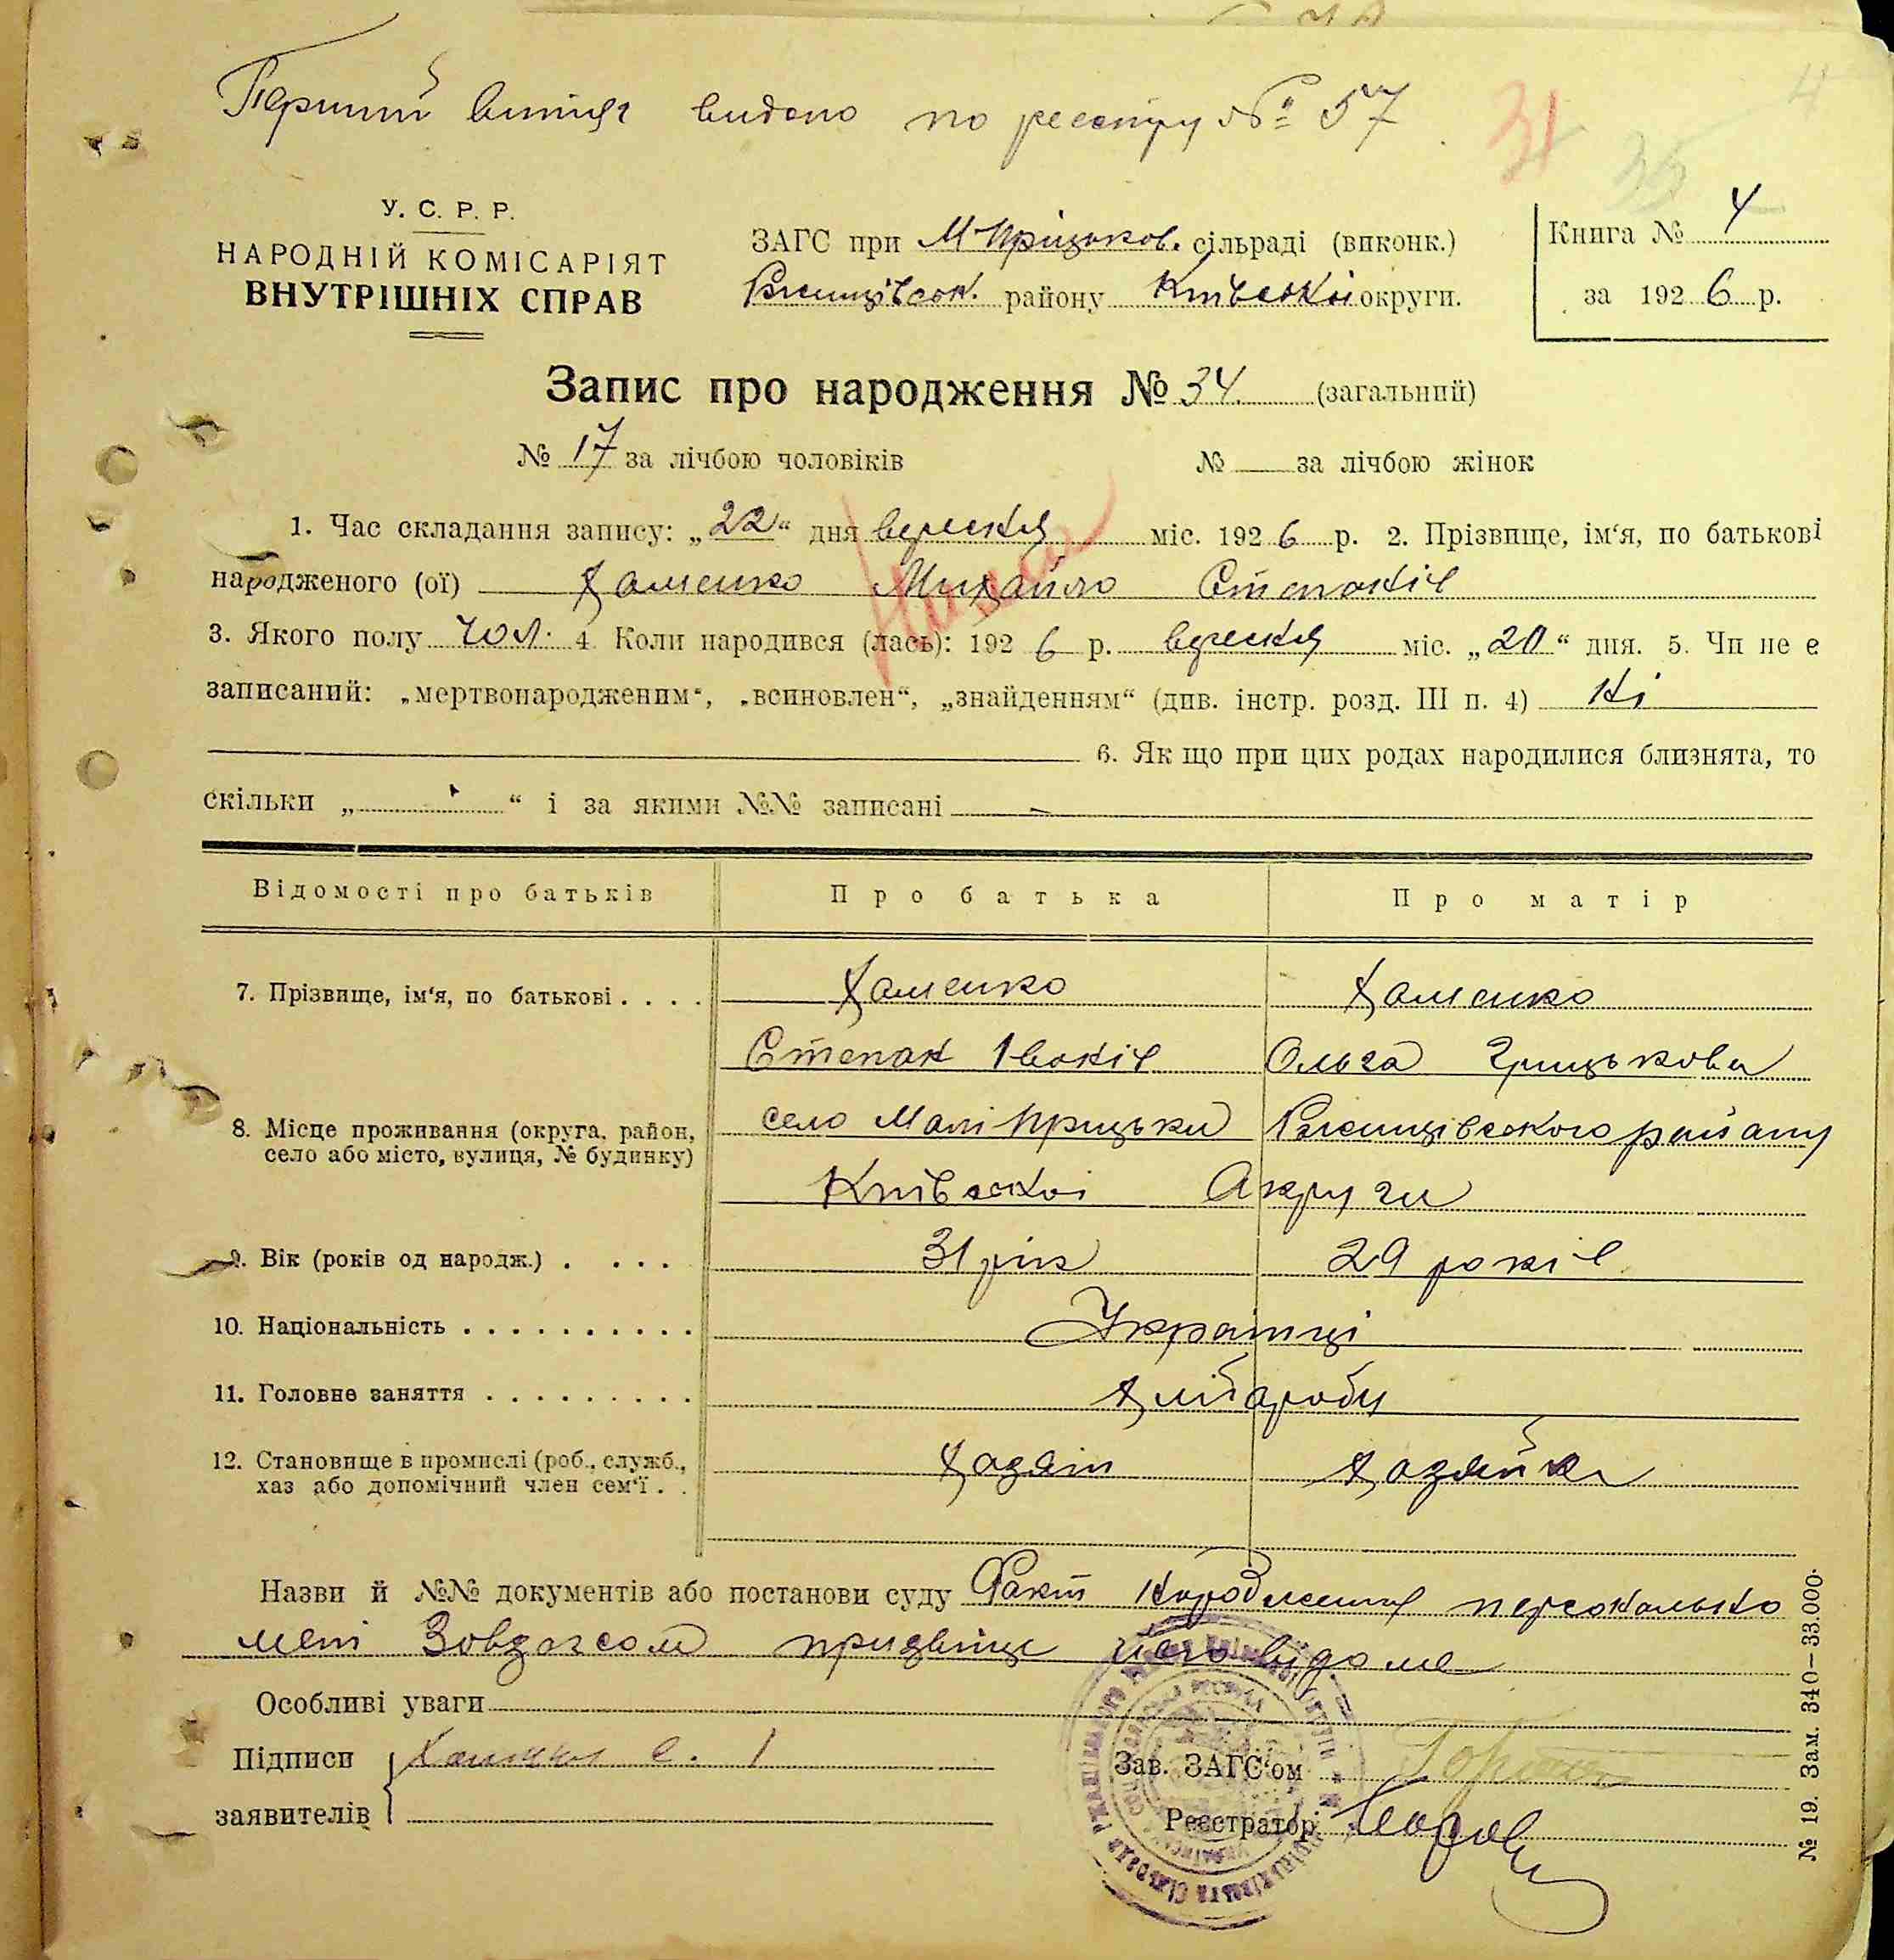 Перший витяг видано по реестру № 57
31
35
4
У. С. Р. Р.
НАРОДНІЙ КОМІСАРІЯТ
ВНУТРІШНІХ СПРАВ
ЗАГС при М Прицьков. сільраді (виконк.)
Ржищівськ. району Київської округи.
Книга № 4
за 1926 р.
Запис про народження № 34 (загальний)
№ 17 за лічбою чоловіків № — за лічбою жінок
1. Час складання запису: „22“ дня вересня міс. 1926 р. 2. Прізвище, ім‘я, по батькові
народженого (ої) Хоменко Михайло Степанів
3. Якого полу чол. 4. Коли народився (лась): 1926 р. вересня міс. „20“ дня. 5. Чи не є
записаний: „мертвонародженим“, „всиновлен“, „знайденням“ (див. інстр. розд. III п. 4) Ні
6. Як що при цих родах народилися близнята, то
скільки „ “ і за якими №№ записані —
Відомості про батьків Про батька Про матір
7. Прізвище, ім‘я, по батькові . . . . Хоменко Хоменко
Степан Іванів Ольга Грицькова
8. Місце проживання (округа, район, село Малі Прицьки Ржищівського району
село або місто, вулиця, № будинку)
Київської Округи
9. Вік (років од народж.) . . . . 31 рік 29 років
10. Національність . . . . . . . . . . Українці
11. Головне заняття . . . . . . . . . Хлібароби
12. Становище в промислі (роб., служб., Хазяін Хазяйка
хаз або допомічний член сем‘ї . .
Назви й №№ документів або постанови суду Факт народження персонально
мені Завзагсом прізвіще його відоме
Особливі уваги
Підписи
заявителів
Зав. ЗАГС‘ом
Реєстратор
№ 19. Зам. 340—33.000.